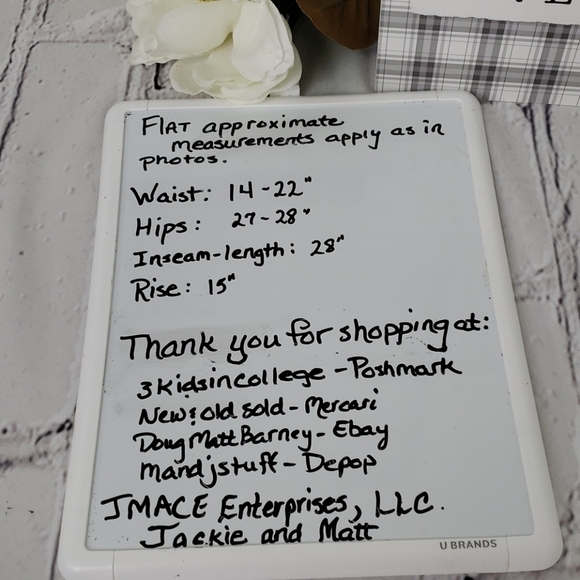 FLAT approximate
measurements apply as in
photos.
Waist: 14-22"
Hips: 27-28"
Inseam-length: 28"
Rise: 15"
Thank you for shopping at:
3kidsincollege - Poshmark
New&old sold - Mercari
DougMattBarney - Ebay
mandjstuff - Depop
JMACE Enterprises, LLC.
Jackie and Matt
U BRANDS